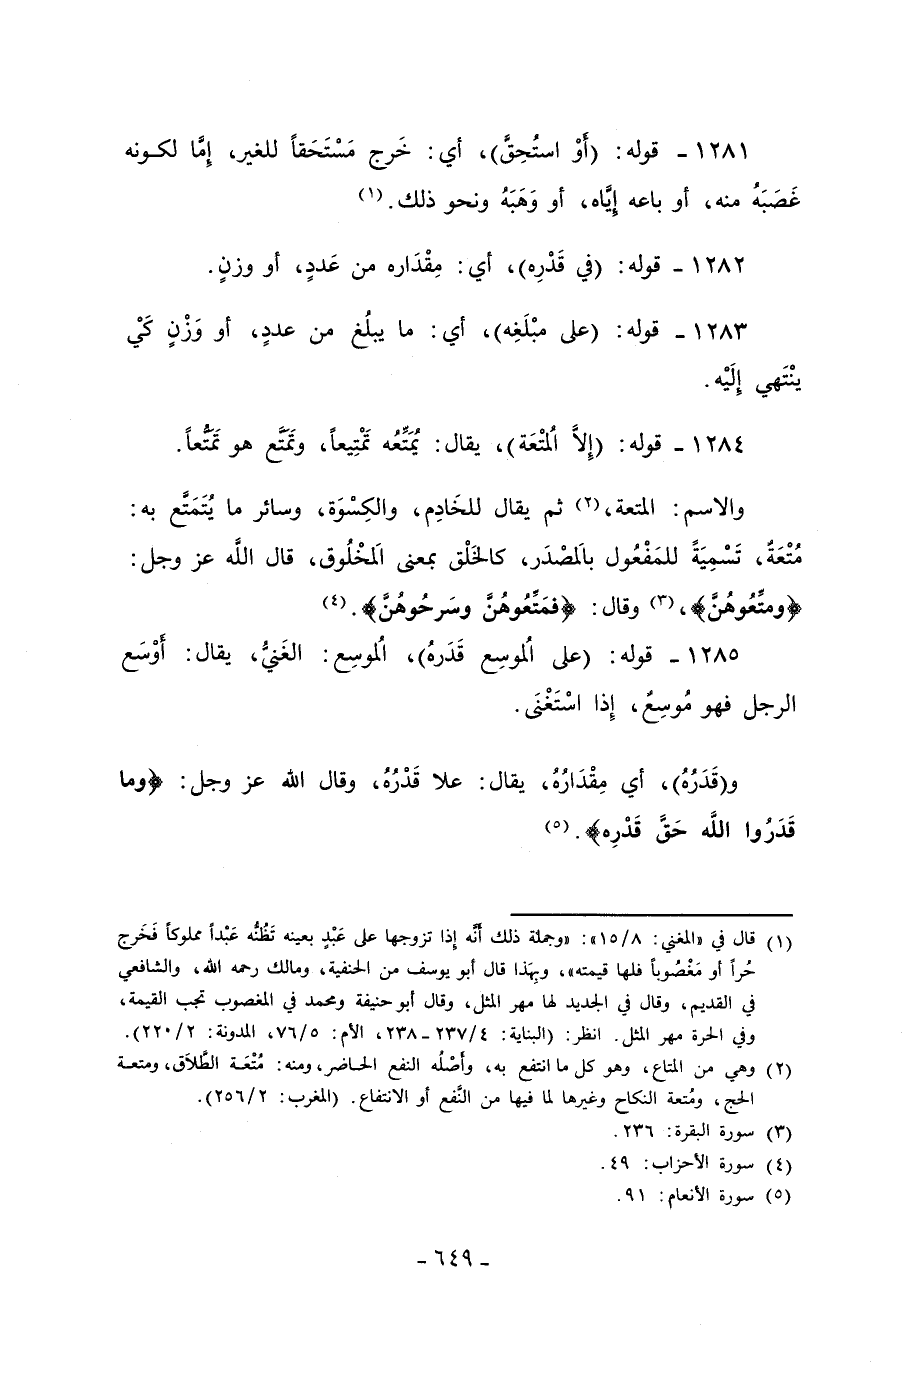 ١٢٨١ - قوله: (أَوْ استُحِقَّ)، أي: خَرج مَسْتَحَقاً للغير، إمَّا لكونه
غَصَبَهُ منه، أو باعه إيَّاه، أو وَهَبَهُ ونحو ذلك.(١)
١٢٨٢ - قوله: (في قَدْرِه)، أي: مِقْدَاره من عَددٍ، أو وزنٍ.
١٢٨٣ - قوله: (على مبْلَغِه)، أي: ما يبلُغ من عددٍ، أو وَزْنٍ كَيْ
ينْتَهي إلَيْه.
١٢٨٤ - قوله: (إلاَّ اُلمتْعَة)، يقال: يُمَتِّعُه تَمْتِيعاً، وتَمَتَّع هو تَمَتُّعاً.
والاسم: المتعة،(٢) ثم يقال للخَادِم، والكِسْوَة، وسائر ما يُتَمَتَّع به:
مُتْعَةٌ، تَسْمِيَةً للمَفْعُول بالَمصْدَر، كالخَلْق بمعنى الَمخْلُوق، قال اللَّه عز وجل:
﴿ومتِّعُوهُنَّ﴾،(٣) وقال: ﴿فمَتِّعُوهُنَّ وسَرحُوهُنَّ﴾.(٤)
١٢٨٥ - قوله: (على اُلموسِع قَدَرهُ)، اُلموسِع: الغَنيُّ، يقال: أَوْسَع
الرجل فهو مُوسِعٌ، إذا اسْتَغْنَى.
و(قَدَرُهُ)، أي مِقْدَارُهُ، يقال: علا قَدْرُهُ، وقال الله عز وجل: ﴿وما
قَدَرُوا اللَّه حَقَّ قَدْرِه﴾.(٥)
(١) قال في «المغني: ١٥/٨»: «وجملة ذلك أنَّه إذا تزوجها على عَبْدٍ بعينه تَظُنُّه عَبْداً مملوكاً فَخَرج
حُراً أو مَغْصُوباً فلها قيمته»، وبِهَذا قال أبو يوسف من الحنفية، ومالك رحمه الله، والشافعي
في القديم، وقال في الجديد لها مهر المثل، وقال أبو حنيفة ومحمد في المغصوب تجب القيمة،
وفي الحرة مهر المثل. انظر: (البناية: ٢٣٧/٤ - ٢٣٨، الأم: ٧٦/٥، المدونة: ٢٢٠/٢).
(٢) وهي من المتاع، وهو كل ما انتفع به، وأصْلُه النفع الحاضر، ومنه: مُتْعَة الطَّلاَق، ومتعة
الحج، ومُتعة النكاح وغيرها لما فيها من النَّفع أو الانتفاع. (المغرب: ٢٥٦/٢).
(٣) سورة البقرة: ٢٣٦.
(٤) سورة الأحزاب: ٤٩.
(٥) سورة الأنعام: ٩١.
- ٦٤٩ -